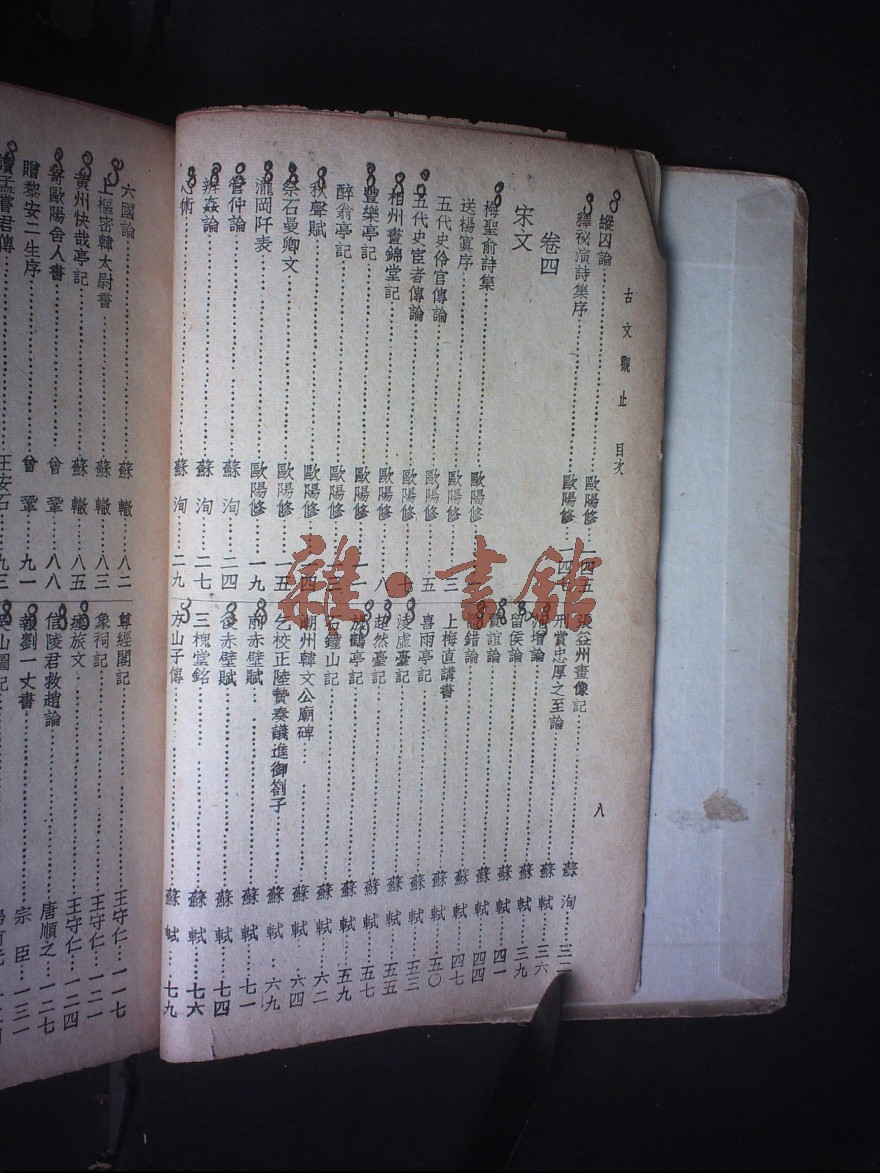 古文觀止 目次 八
縱囚論 歐陽修 一四五
釋祕演詩集序 歐陽修 一四七
卷四
宋文
梅聖俞詩集 歐陽修
送楊寘序 歐陽修 三
五代史伶官傳論 歐陽修 五
五代史宦者傳論 歐陽修 七
相州晝錦堂記 歐陽修 八
豐樂亭記 歐陽修
醉翁亭記 歐陽修
秋聲賦 歐陽修
祭石曼卿文 歐陽修
瀧岡阡表 歐陽修 一九
管仲論 蘇洵 二四
辨姦論 蘇洵 二七
心術 蘇洵 二九
張益州畫像記 蘇洵 三二
刑賞忠厚之至論 蘇軾 三六
范增論 蘇軾 三九
留侯論 蘇軾 四一
賈誼論 蘇軾 四四
鼂錯論 蘇軾 四七
上梅直講書 蘇軾 五〇
喜雨亭記 蘇軾 五三
凌虛臺記 蘇軾 五五
超然臺記 蘇軾 五七
放鶴亭記 蘇軾 五九
石鐘山記 蘇軾 六二
潮州韓文公廟碑 蘇軾 六四
乞校正陸贄奏議進御劄子 蘇軾 六九
前赤壁賦 蘇軾 七一
後赤壁賦 蘇軾 七四
三槐堂銘 蘇軾 七六
方山子傳 蘇軾 七九
六國論 蘇轍 八二
上樞密韓太尉書 蘇轍 八三
黃州快哉亭記 蘇轍 八五
寄歐陽舍人書 曾鞏 八八
贈黎安二生序 曾鞏 九一
讀孟嘗君傳 王安石 九三
尊經閣記 王守仁 一一七
象祠記 王守仁 一二一
瘞旅文 王守仁 一二四
信陵君救趙論 唐順之 一二七
報劉一丈書 宗臣 一三一
吳山圖記
雜·書館